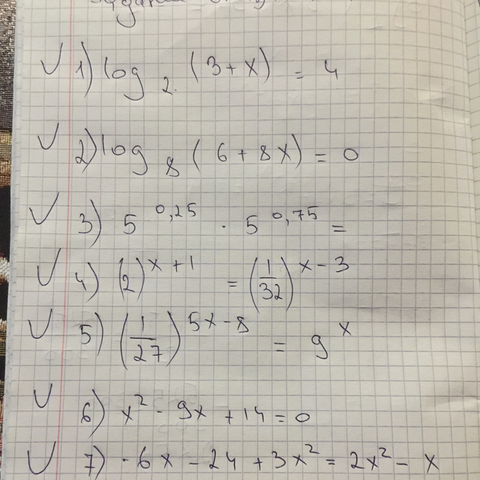 ✓ 1) log₂ (3 + x) = 4
✓ 2) log₈ (6 + 8x) = 0
✓ 3) 5^0,25 · 5^0,75 =
✓ 4) (2)^x + 1 = (1/32)^x − 3
✓ 5) (1/27)^5x − 8 = 9^x
✓ 6) x² − 9x + 14 = 0
✓ 7) -6x − 24 + 3x² = 2x² − x